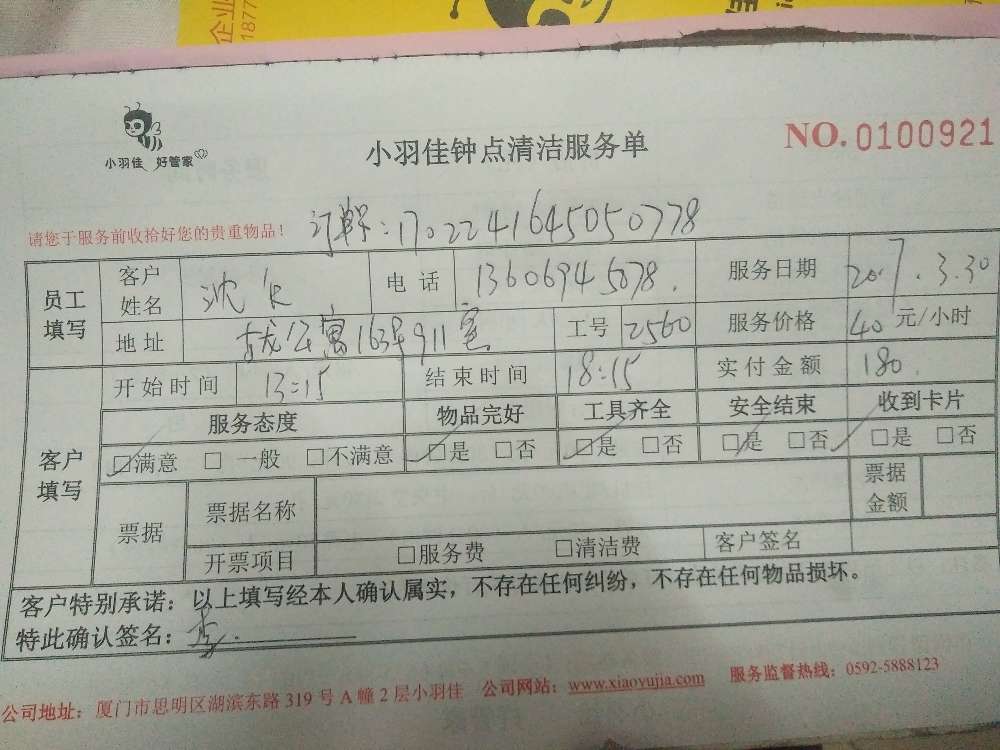 企业
1877
小羽佳 好管家
小羽佳钟点清洁服务单
NO. 0100921
请您于服务前收拾好您的贵重物品！
订单号：17022241645050778
员工填写
客户姓名 沈 电话 13606945078. 服务日期 2017.3.30
地址 公寓163号911室 工号 2560 服务价格 40 元/小时
客户填写
开始时间 13:15 结束时间 18:15 实付金额 180.
服务态度 物品完好 工具齐全 安全结束 收到卡片
□满意 □一般 □不满意 □是 □否 □是 □否 □是 □否 □是 □否
票据 票据名称 票据金额
开票项目 □服务费 □清洁费 客户签名
客户特别承诺：以上填写经本人确认属实，不存在任何纠纷，不存在任何物品损坏。
特此确认签名：李.
公司地址：厦门市思明区湖滨东路 319 号 A 幢 2 层小羽佳 公司网站：www.xiaoyujia.com 服务监督热线：0592-5888123